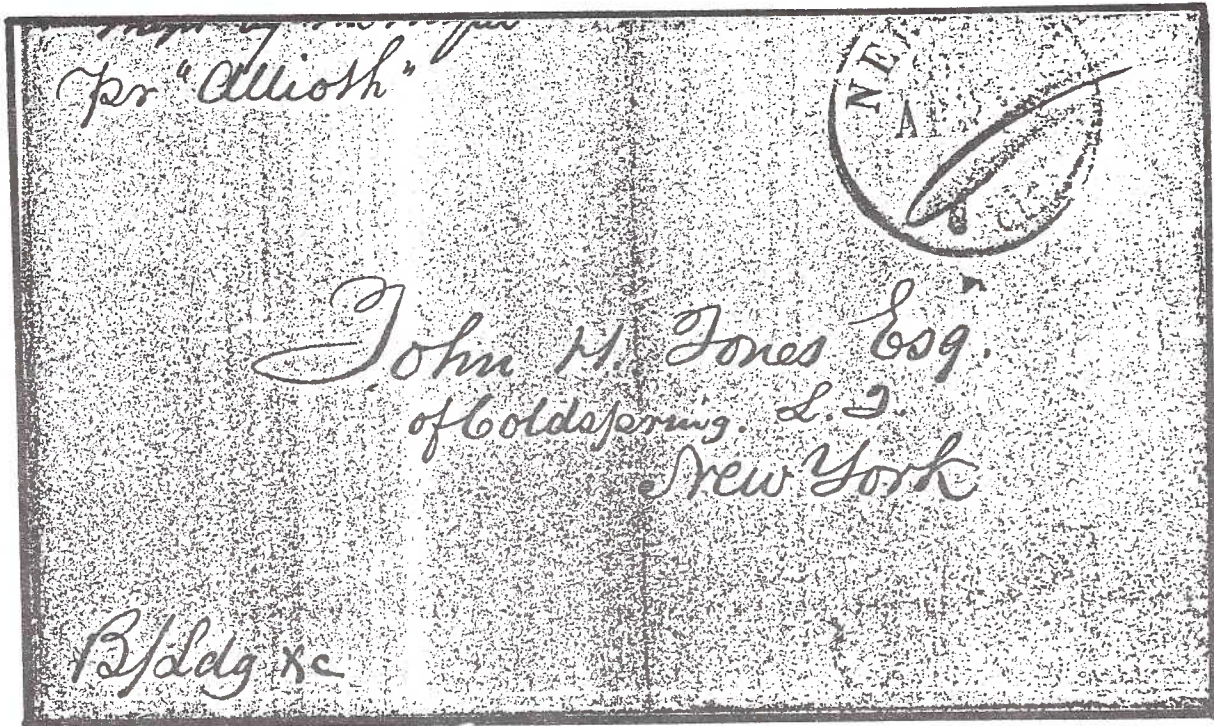 pr "Allioth"
NE
A
cts
John H. Jones Esq.
of Coldspring. L. I.
New York
B/Ldg &c